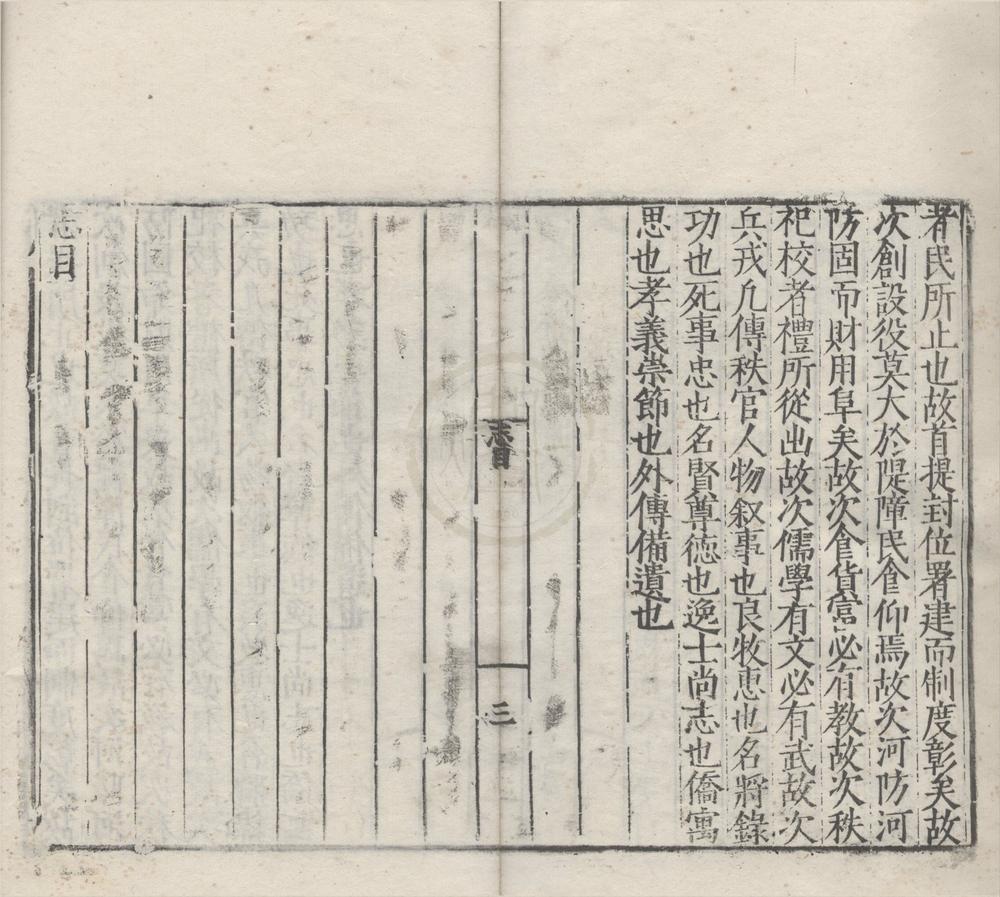 者民所止也故首提封位署建而制度彰矣故
次創設役莫大於隄障民食仰焉故次河防河
防固而財用阜矣故次食貨富必有教故次秩
祀校者禮所從出故次儒學有文必有武故次
兵戎凡傳秩官人物叙事也良牧恵也名將錄
功也死事忠也名賢尊徳也逸士尚志也僑寓
思也孝義崇節也外傳備遺也
志目
三
志目